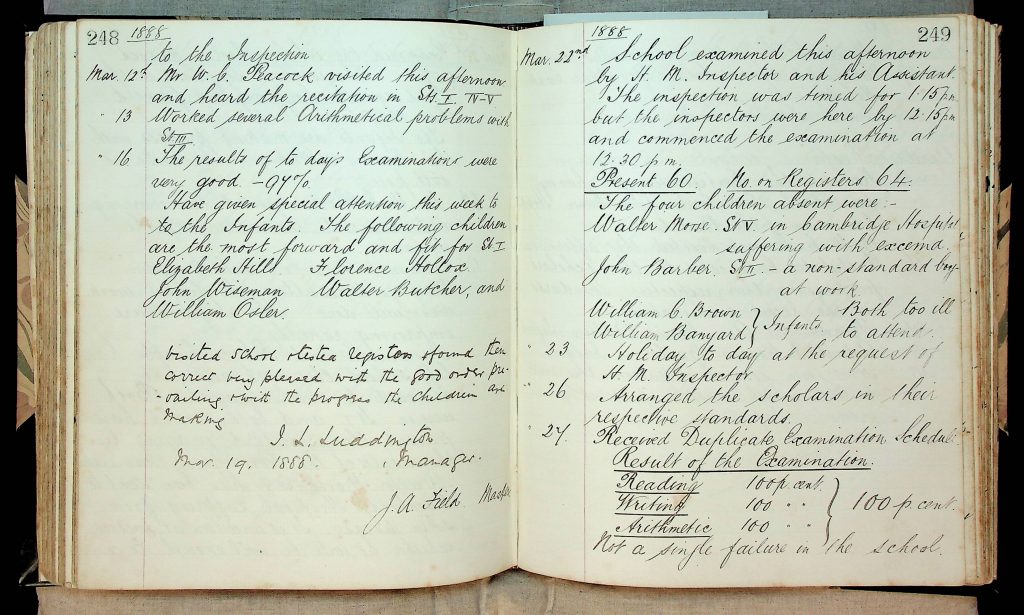 248 1888
to the Inspection
Mar. 12th Mr W. C. Peacock visited this afternoon
and heard the recitation in Sts. I. IV-V
" 13 Worked several Arithmetical problems with
St III
" 16 The results of to day's Examinations were
very good. - 97%
Have given special attention this week to
to the Infants The following children
are the most forward and fit for St I
Elizabeth Hills Florence Hollox
John Wiseman Walter Butcher, and
William Osler.
Visited School & tested registers & found them
correct very pleased with the good order pre-
-vailing & with the progress the children are
making
J. L. Luddington
Mar. 19. 1888. Manager.
J. A. Field Master
1888 249
Mar. 22nd School examined this afternoon
by H. M. Inspector and his Assistant.
The inspection was timed for 1.15 p.m
but the inspectors were here by 12.15 pm
and commenced the examination at
12.30. p.m.
Present 60. No. on Registers 64.
The four children absent were:-
Walter Morse. St V. in Cambridge Hospital
suffering with excema.
John Barber. St II. - a non-standard boy-
at work.
William C. Brown } Infants. Both too ill
William Banyard to attend.
" 23 Holiday to day at the request of
H. M. Inspector
" 26 Arranged the scholars in their
respective standards.
" 27. Received Duplicate Examination Schedule
Result of the Examination.
Reading 100 p. cent. }
Writing 100 " " 100 p. cent.
Arithmetic 100 " "
Not a single failure in the school.